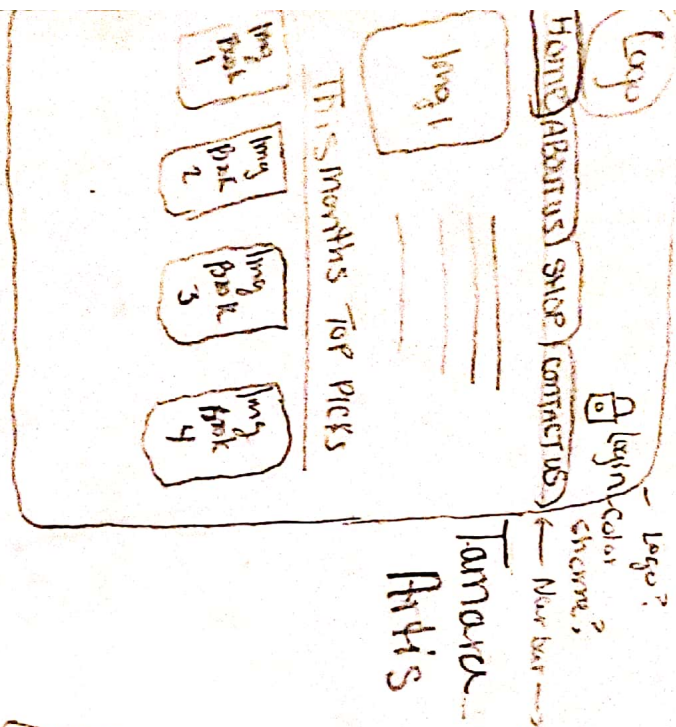 Logo
Login
Home ABOUT US SHOP CONTACT US
Img 1
This Months TOP PICKS
Img
Book
1
Img
Book
2
Img
Book
3
Img
book
4
- Logo?
Color
Sheme?
← Nav bar →
Tamara
Artis